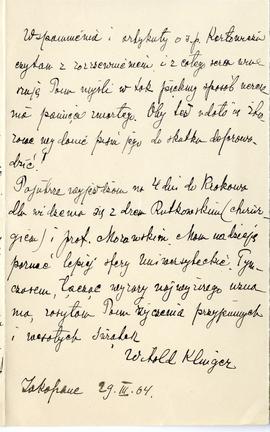 Wspomnienia i artykuły o ś.p. Karłowiczu
czytam z rozrzewnieniem i z całego serca
Panu myśli w tak piękny sposób
pamięci zmarłego. Oby też udało się
wydanie pism jego do skutku doprowa-
dzić!
Pojutrze wyjeżdżam na 4 dni do Krakowa
dla widzenia się z drem Rutkowskim (chirur-
giem) i prof. Morawskim. Mam nadzieję
poznać lepiej sfery uniwersyteckie. Tym-
czasem, łącząc wyrazy najwyższego uzna-
nia, zasyłam Panu życzenia przyjemnych
i wesołych Świątek
Witold Klinger
Zakopane 29. III. 04.